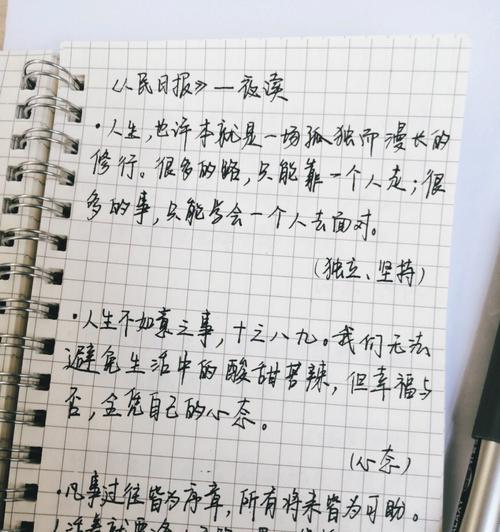 《人民日报》—夜读
·人生,也许本就是一场孤独而漫长的
修行。很多的路,只能靠一个人走;很
多的事,只能学会一个人去面对。
(独立、坚持)
·人生不如意之事,十之八九。我们无法
避免生活中的酸甜苦辣,但幸福与
否,全凭自己的心态。
(心态)
·凡事过往皆为序章,所有将来皆为可盼。